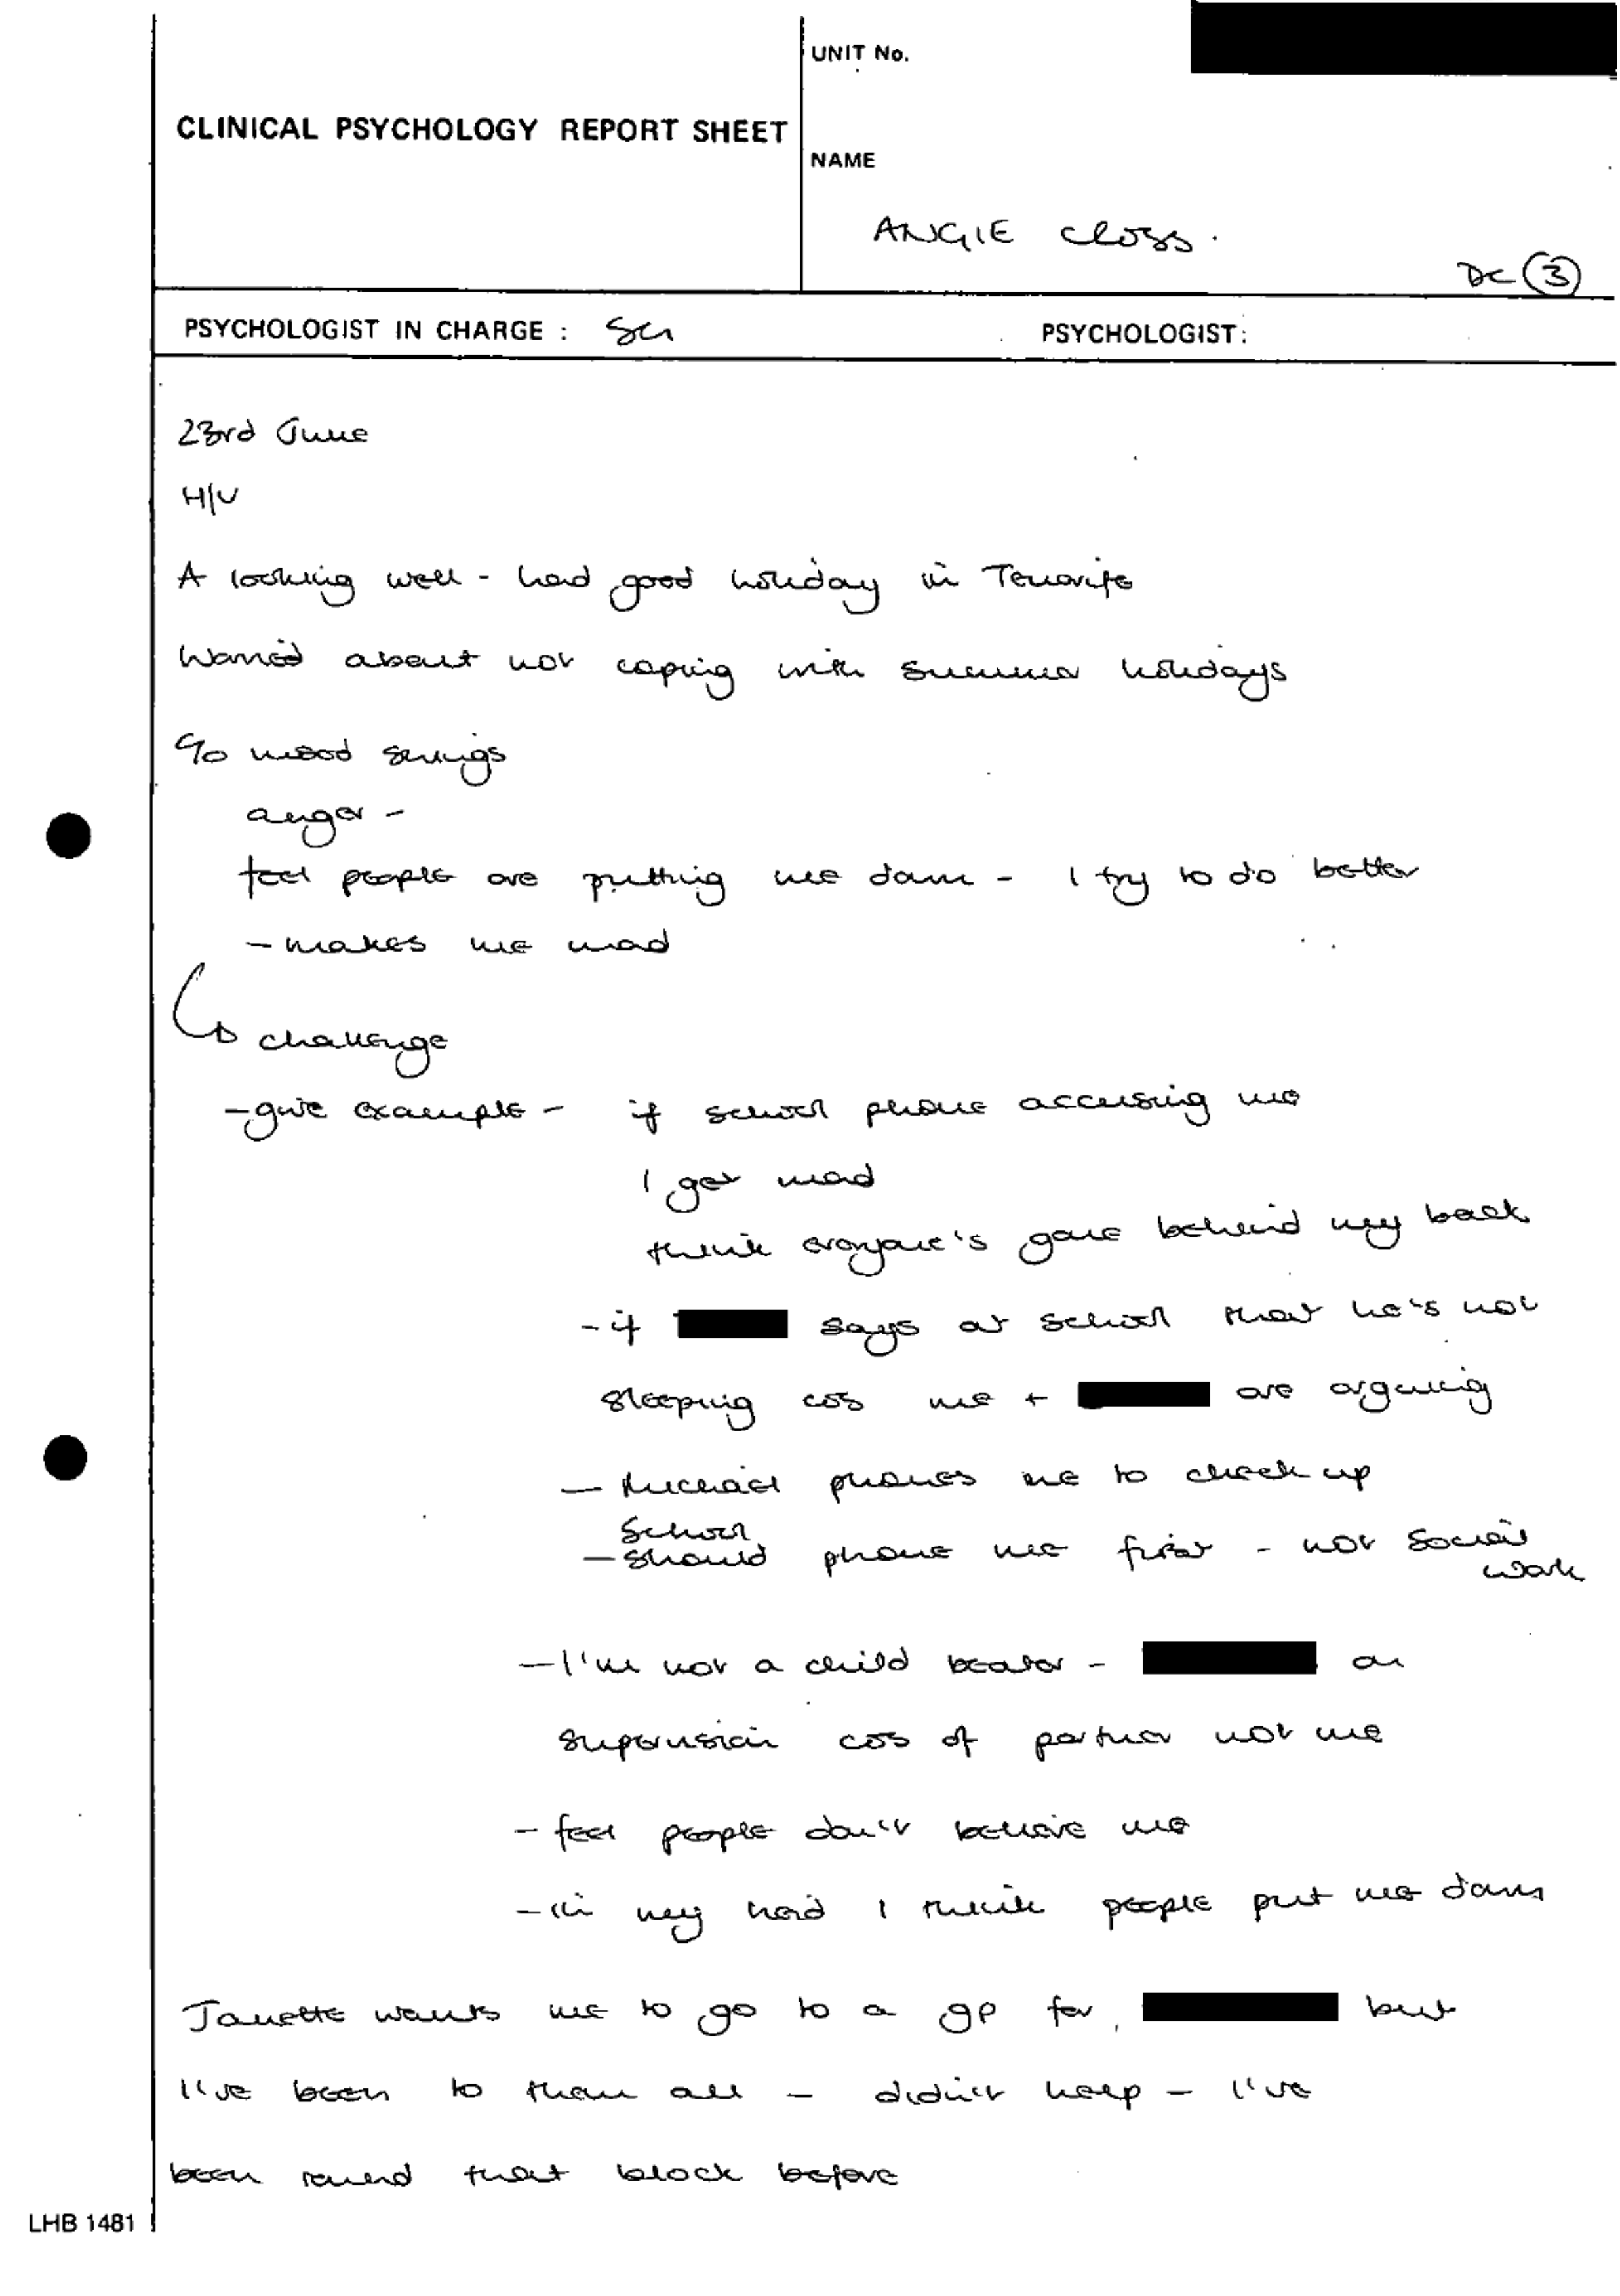 UNIT No.
CLINICAL PSYCHOLOGY REPORT SHEET
NAME
ANGIE Closs.
DC ③
PSYCHOLOGIST IN CHARGE :
PSYCHOLOGIST:
23rd June
H/V
A looking well - had good holiday in Tenerife
Worried about not coping with summer holidays
c/o mood swings
anger -
feel people are putting me down - I try to do better
- makes me mad
challenge
- give example - if school phone accusing me
I get mad
think everyone's gone behind my back
- if says at school that he's not
sleeping cos me + are arguing
- Michael phones me to check up
School
- should phone me first - not social
work
- I'm not a child beater - on
supervision cos of partner not me
- feel people don't believe me
- in my head I think people put me down
Janette wants me to go to a gp for but
I've been to them all - didn't help - I've
been round that block before
LHB 1481